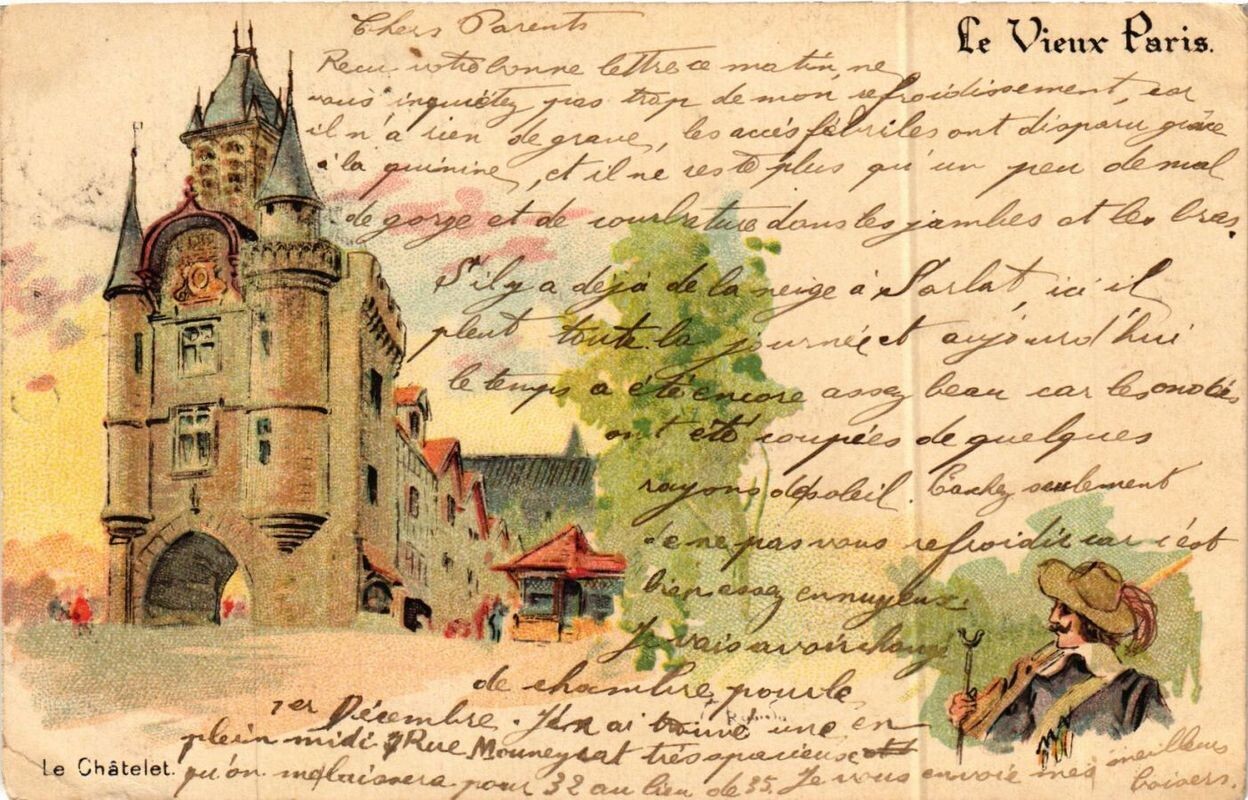 Le Vieux Paris.
Chers Parents
Reçu votre bonne lettre ce matin, ne
vous inquiétez pas trop de mon refroidissement, car
il n'a rien de grave, les accès fébriles ont disparu grâce
à la quinine, et il ne reste plus qu'un peu de mal
de gorge et de courbature dans les jambes et les bras.
S'il y a déjà de la neige à Sarlat, ici il
pleut toute la journée et aujourd'hui
le temps a été encore assez beau car les ondées
ont été coupées de quelques
rayons de soleil. Tachez seulement
de ne pas vous refroidir car c'est
bien assez ennuyeux.
Je vais avoir changé
de chambre pour le
1er Décembre. J'en ai trouvé une en
plein midi 7 Rue Mouneyrat très spacieuse
qu'on me laissera pour 32 au lieu de 35. Je vous envoie mes meilleurs
baisers.
Le Châtelet.